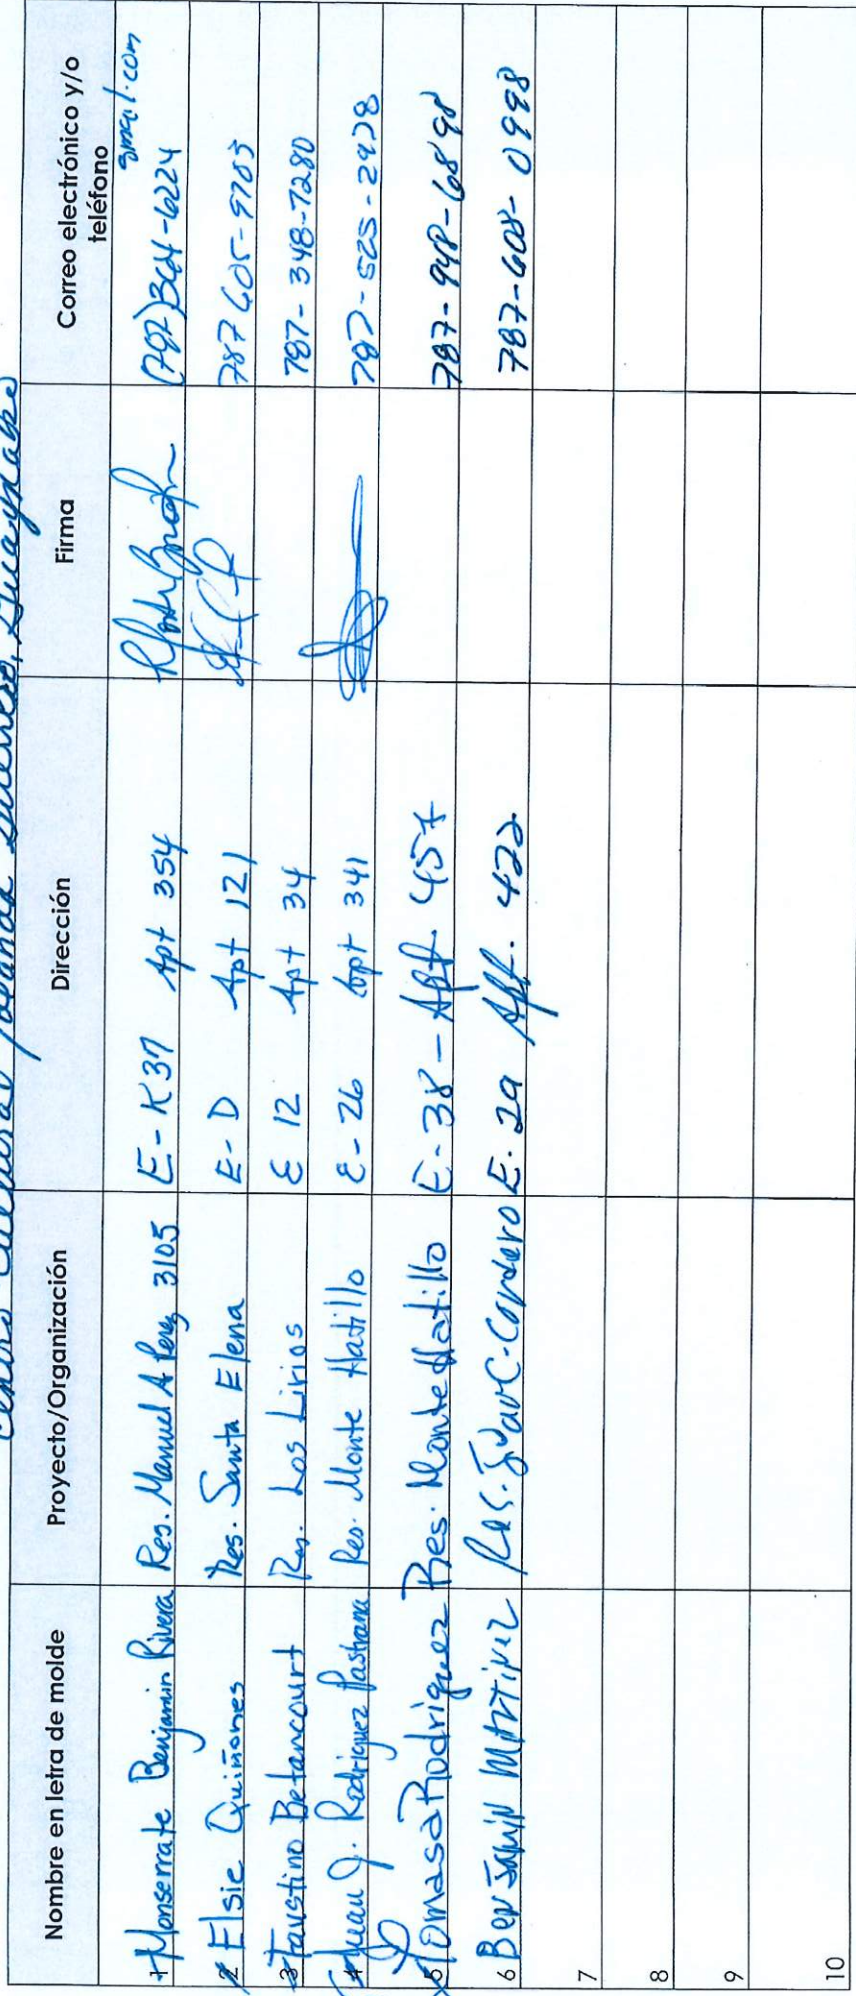 Centro Cultural
Nombre en letra de molde Proyecto/Organización Dirección Firma Correo electrónico y/o teléfono
1 Monserrate Benjamin Rivera Res. Manuel A Perez 3105 E-K37 Apt 354 (787)364-6224 gmail.com
2 Elsie Quiñones Res. Santa Elena E-D Apt 121 787 605-9703
3 Faustino Betancourt Res. Los Lirios E 12 Apt 34 787-348-7280
4 Juan J. Rodriguez Pastrana Res. Monte Hatillo E-26 Apt 341 787-525-2978
5 Tomasa Rodriguez Res. Monte Hatillo E-38-Apt. 457
6 Benjamin Martinez Res. Juan C. Cordero E. 29 Apt. 422 787-608-0998
7
8
9
10